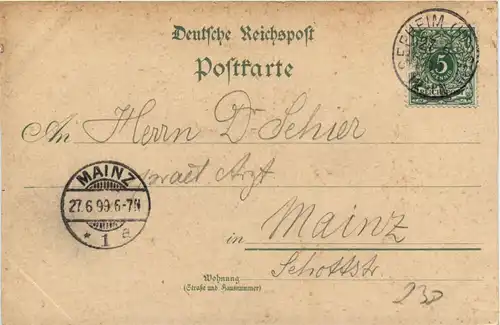 Deutsche Reichspost
Postkarte
5
An Herrn Dr Schier
Arzt
MAINZ
27.6.99.6-7N
* 1 a
in Mainz
Schottstr.
Wohnung
(Straße und Hausnummer)
230